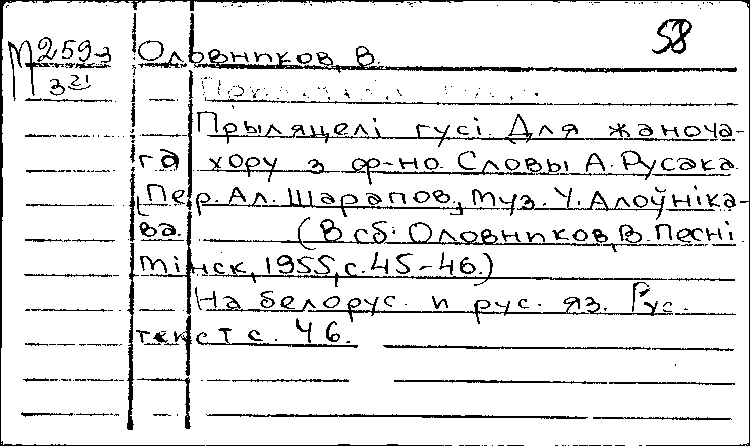 58
М259-3 Оловников, В.
3 21
Прыляцелі гусі. Для жаноча-
га хору з ф-но. Словы А. Русака
[Пер. Ал. Шарапов], Муз. У. Алоўніка-
ва. (В сб: Оловников, В. Песні.
Мінск, 1955, с. 45-46.)
На белорус. и рус. яз. Рус.
текст с. 46.